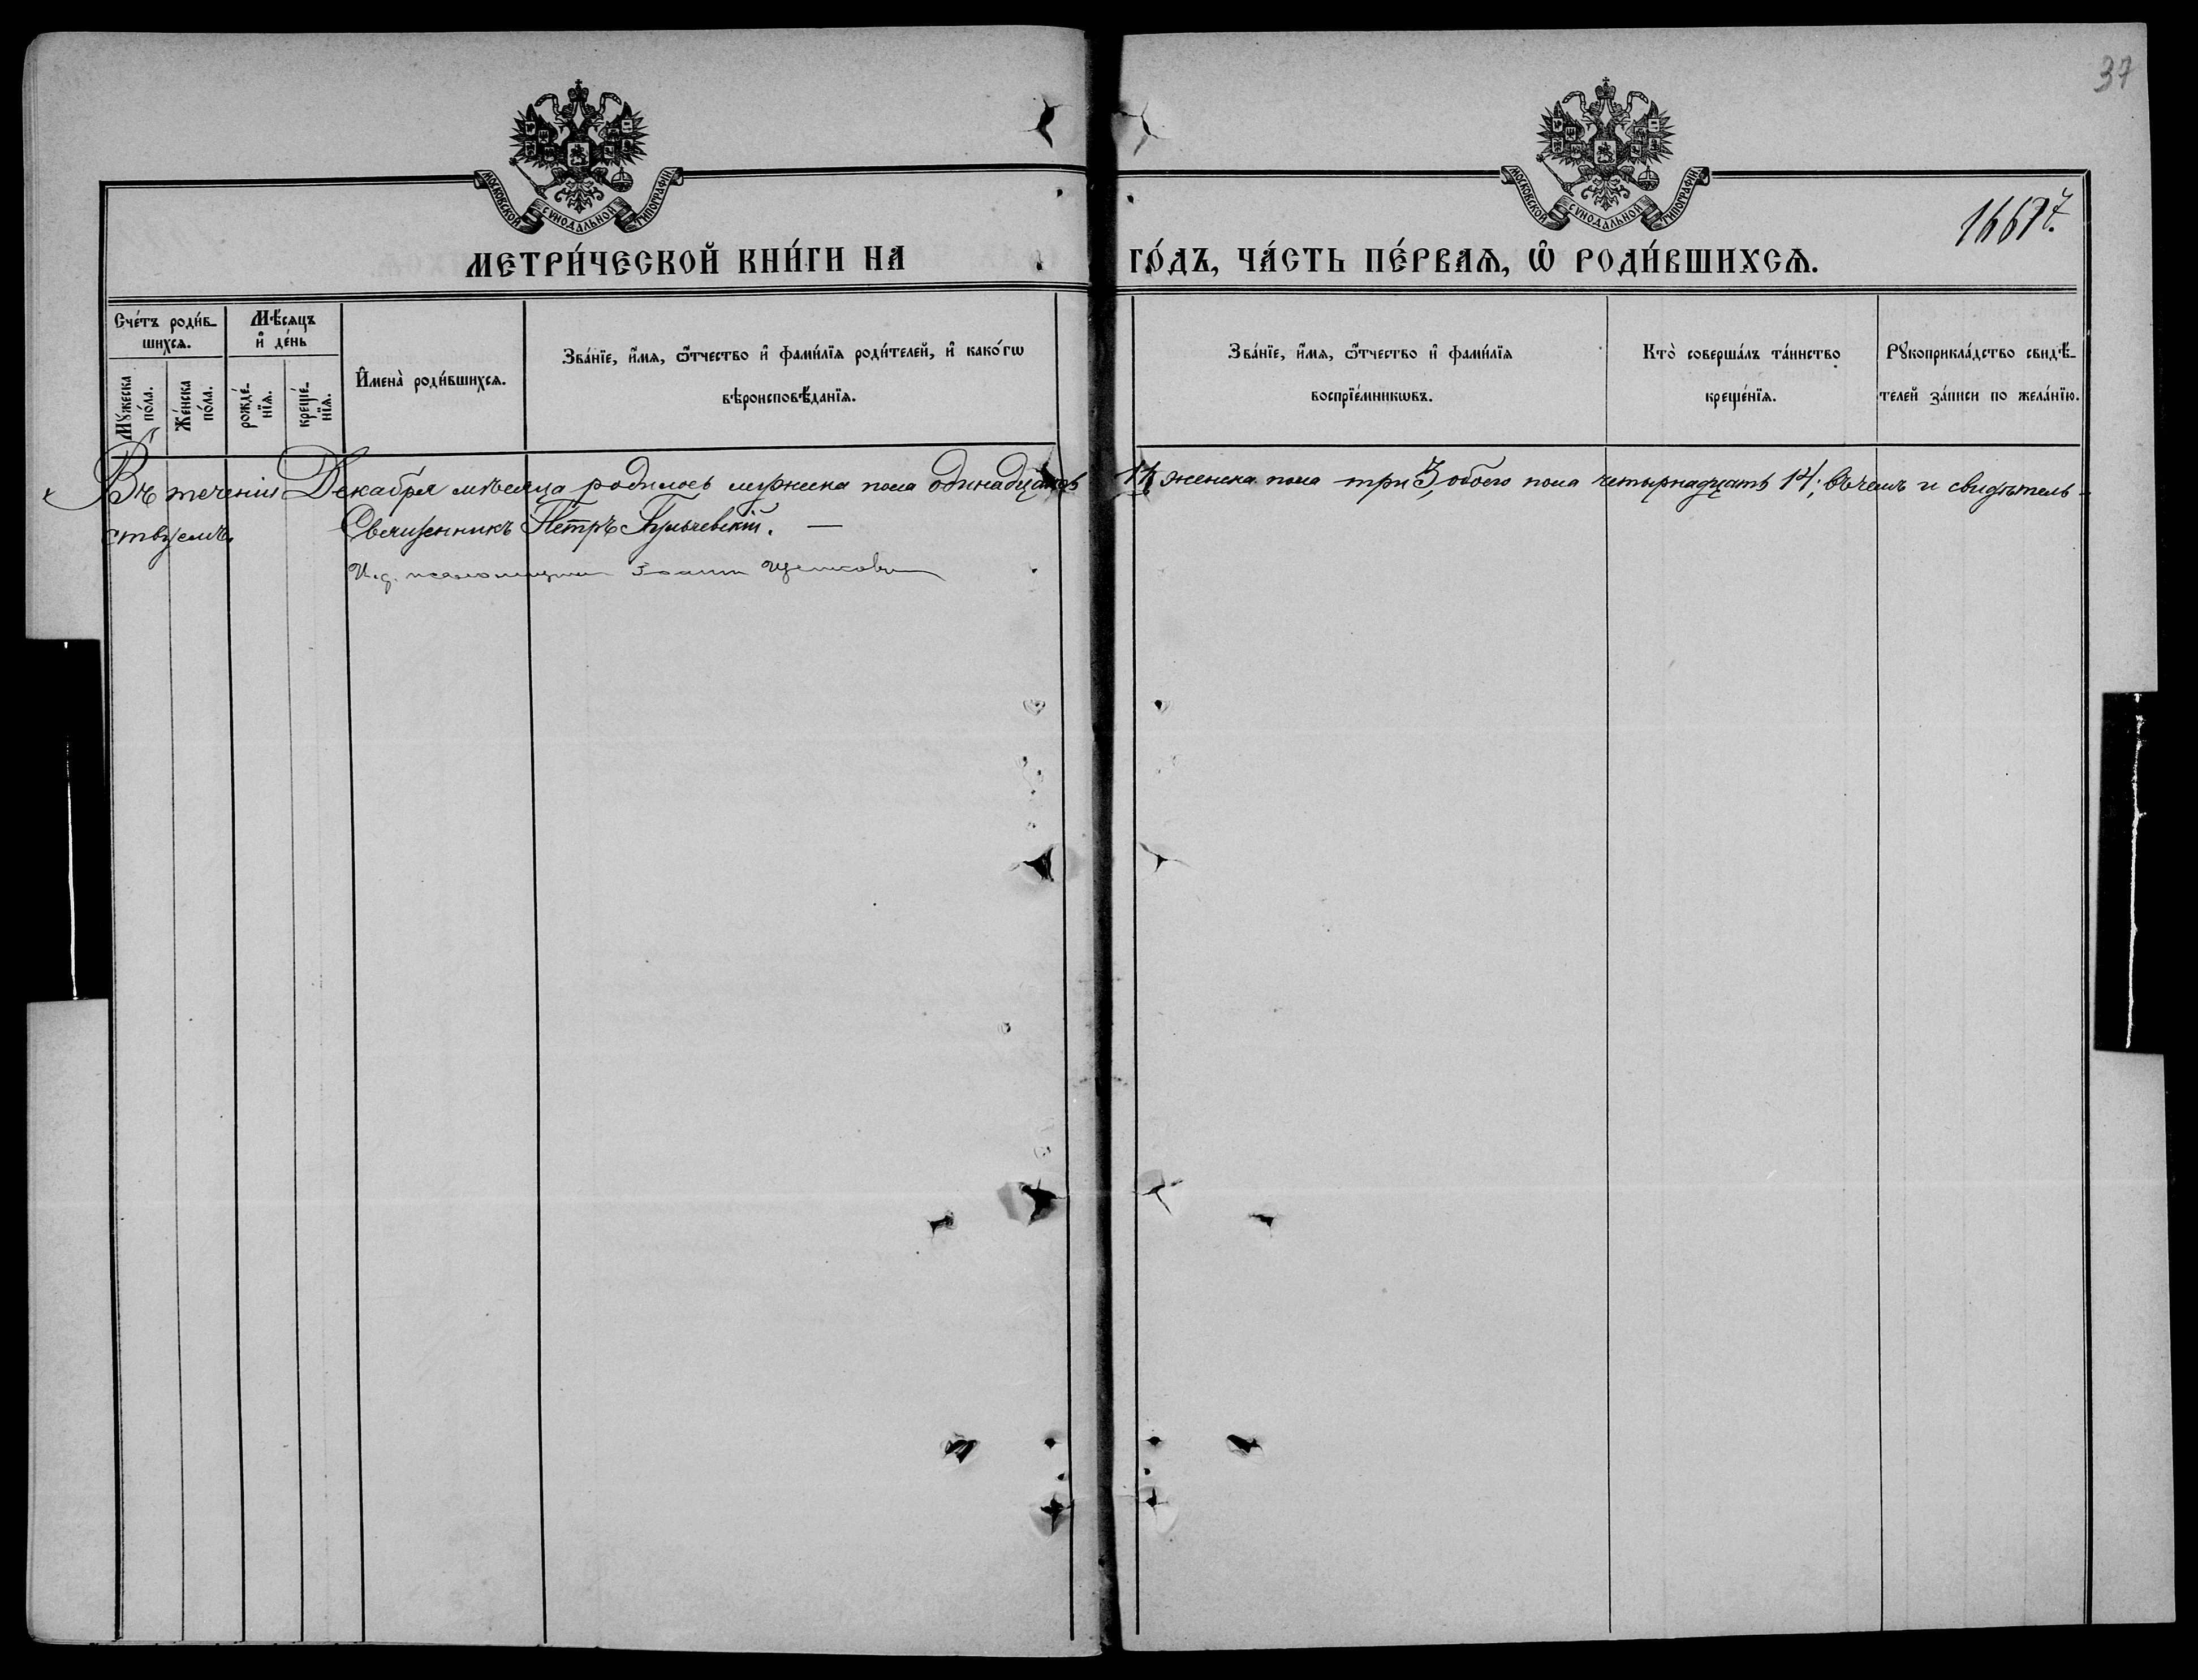 37
1667
МОСКОВСКОЙ СѴНОДАЛЬНОЙ ТИПОГРАФІИ
МОСКОВСКОЙ СѴНОДАЛЬНОЙ ТИПОГРАФІИ
МЕТРИ́ЧЕСКОЙ КНИ́ГИ НА ГО́ДЪ, ЧА́СТЬ ПЕ́РВАѦ, Ѽ РОДИ́ВШИХСѦ.
Сче́тъ роди́в-
шихсѧ.
Мꙋ́жеска
по́ла.
Же́нска
по́ла.
Мѣ́сѧцъ
и҆ де́нь
рожде́-
нїѧ.
креще́-
нїѧ.
И҆мена̀ роди́вшихсѧ.
Зва́нїе, и҆́мѧ, ѻ҆́тчество и҆ фами́лїѧ роди́телей, и҆ како́гѡ
вѣроисповѣ́данїѧ.
Зва́нїе, и҆́мѧ, ѻ҆́тчество и҆ фами́лїѧ
воспрїе́мникѡвъ.
Кто̀ соверша́лъ та́инство
креще́нїѧ.
Рꙋкоприкла́дство свидѣ́-
телей за́писи по жела́нїю.
Въ теченіи Декабря мѣсяца родилось мужеска пола одинадцать 11, женска пола три 3, обоего пола четырнадцать 14; въ чемъ и свидѣтель-
ствуемъ.
Священникъ Петръ
И. д. псаломщика